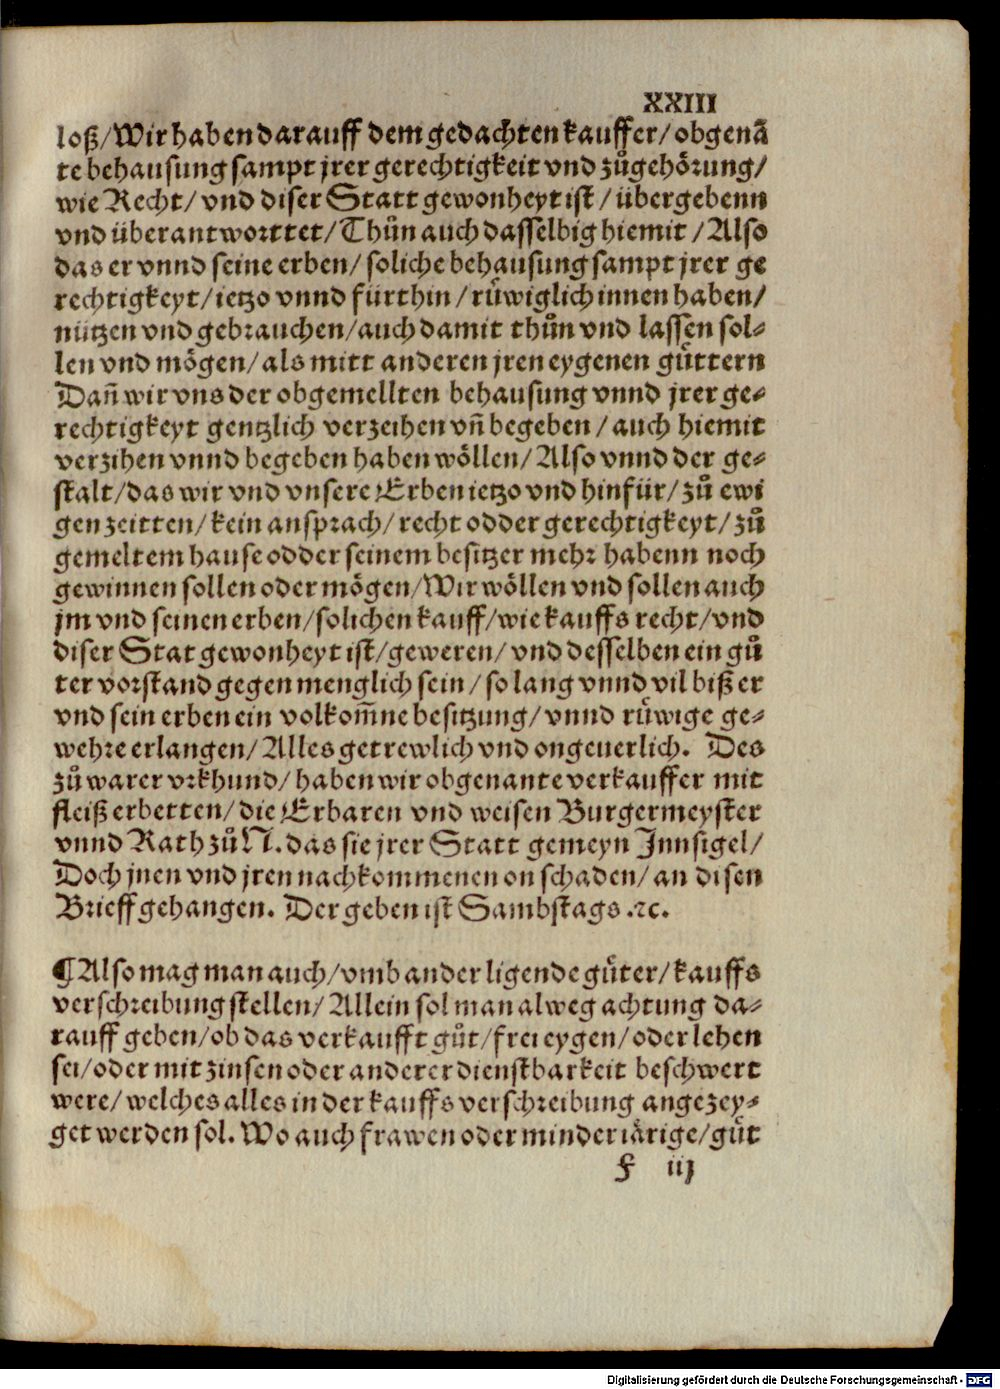 XXIII
loß/Wir haben darauff dem gedachten kauffer/obgenā
te behausung sampt jrer gerechtigkeit vnd zůgehörung/
wie Recht/vnd diser Statt gewonheyt ist/übergebenn
vnd überantworttet/Thůn auch dasselbig hiemit/Also
das er vnnd seine erben/soliche behausung sampt jrer ge
rechtigkeyt/ietzo vnnd fürthin/růwiglich innen haben/
nützen vnd gebrauchen/auch damit thůn vnd lassen sol-
len vnd mögen/als mitt anderen jren eygenen gůttern
Dañ wir vns der obgemellten behausung vnnd jrer ge-
rechtigkeyt gentzlich verzeihen vñ begeben/auch hiemit
verzihen vnnd begeben haben wöllen/Also vnnd der ge-
stalt/das wir vnd vnsere Erben ietzo vnd hinfür/zů ewi
gen zeitten/kein ansprach/recht odder gerechtigkeyt/zů
gemeltem hause odder seinem besitzer mehr habenn noch
gewinnen sollen oder mögen/Wir wöllen vnd sollen auch
jm vnd seinen erben/solichen kauff/wie kauffs recht/vnd
diser Stat gewonheyt ist/geweren/vnd desselben ein gů
ter vorstand gegen menglich sein/so lang vnnd vil biß er
vnd sein erben ein volkom̃ne besitzung/vnnd růwige ge-
wehre erlangen/Alles getrewlich vnd ongeuerlich. Des
zů warer vrkhund/haben wir obgenante verkauffer mit
fleiß erbetten/die Erbaren vnd weisen Burgermeyster
vnnd Rath zů N. das sie jrer Statt gemeyn Jnnsigel/
Doch jnen vnd jren nachkommenen on schaden/an disen
Brieff gehangen. Der geben ist Sambstags .ꝛc.
¶ Also mag man auch/vmb ander ligende gůter/kauffs
verschreibung stellen/Allein sol man alweg achtung da-
rauff geben/ob das verkaufft gůt/frei eygen/oder lehen
sei/oder mit zinsen oder anderer dienstbarkeit beschwert
were/welches alles in der kauffs verschreibung angezey-
get werden sol. Wo auch frawen oder minderiärige/gůt
F iij
Digitalisierung gefördert durch die Deutsche Forschungsgemeinschaft - DFG